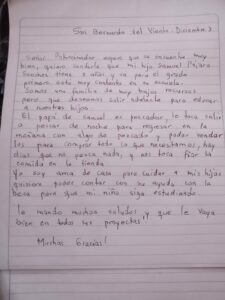 San Bernardo del Viento. Diciembre 3
Señor Patrocinador espero que se encuentre muy
bien, quiero contarle que mi hijo Samuel
Sanchez tiene 5 años y va para el grado
primero esta muy contento en su escuela.
Somos una familia de muy bajos recursos,
pero que deseamos salir adelante para educar
a nuestros hijos.
El papá de Samuel es pescador, le toca salir
a pescar de noche para regresar en la
mañana con algo de pescado y poder vender
los para comprar todo lo que necesitamos, hay
dias que no pesca nada, y nos toca fiar la
comida en la tienda
Yo soy ama de casa para cuidar a mis hijos
quisiera poder contar con su ayuda con la
beca para que mi niño siga estudiando.
le mando muchos saludos, y que le vaya
bien en todos sus proyectos,
Muchas Gracias!